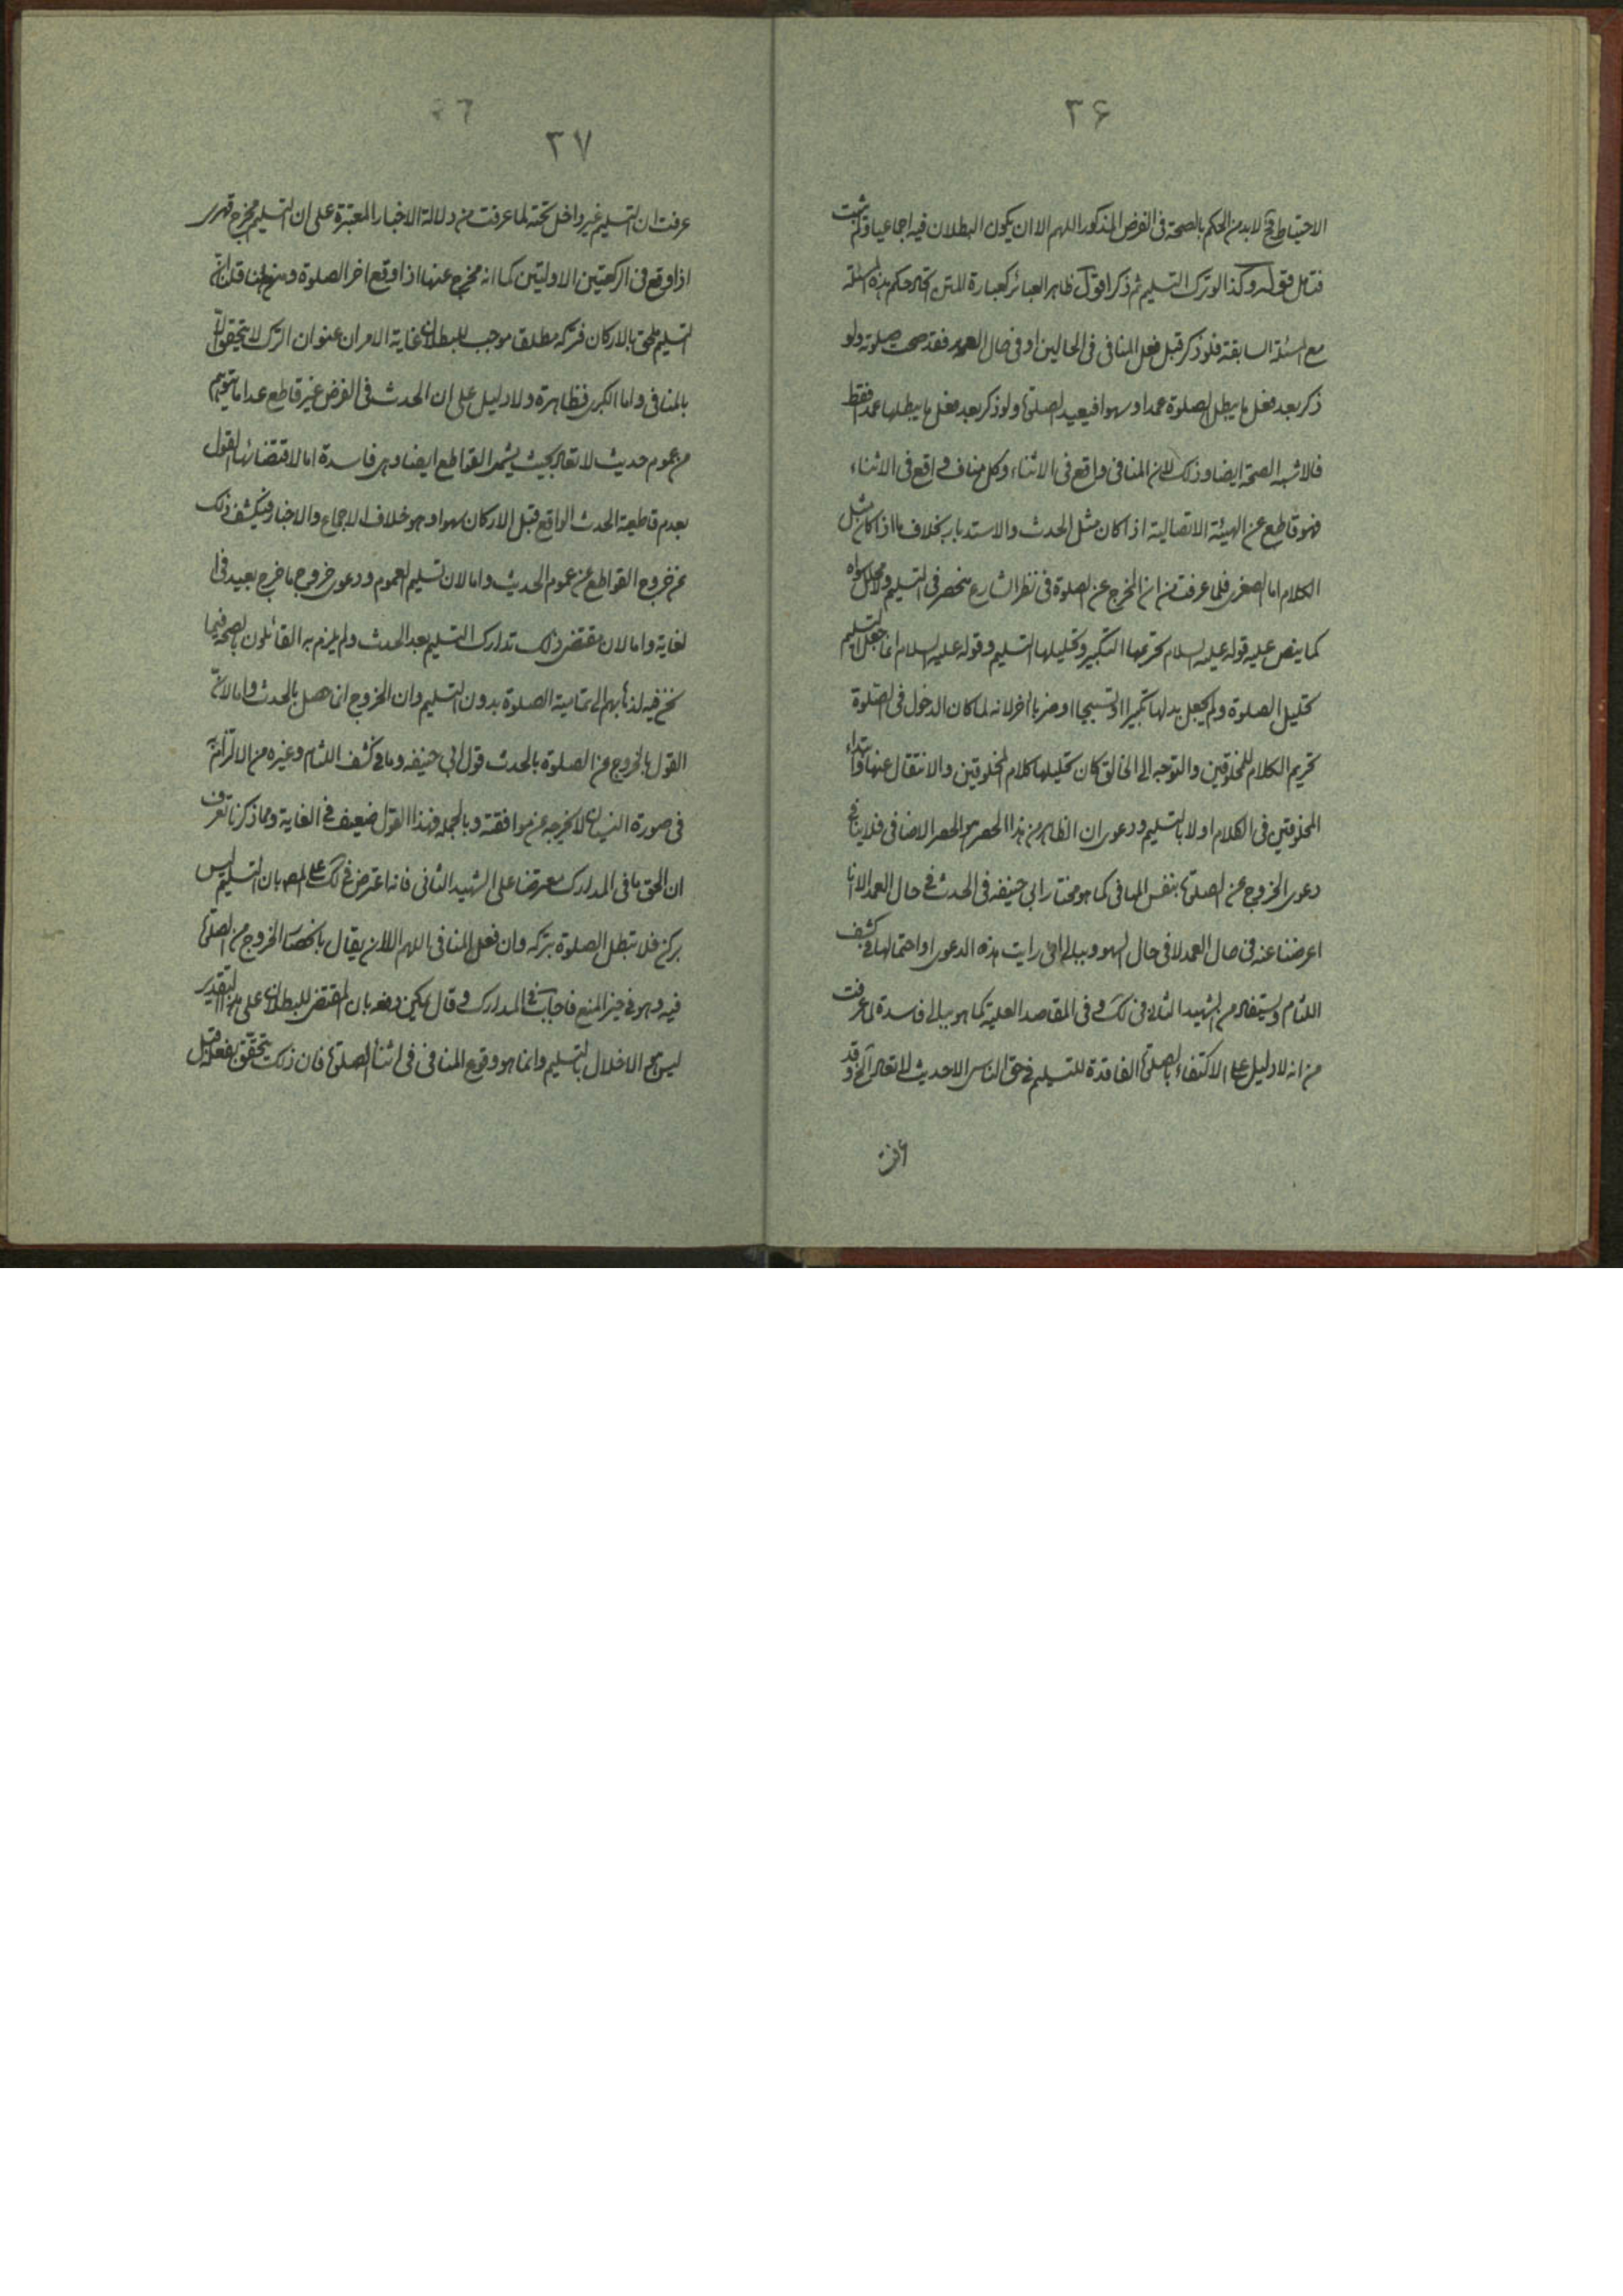 ۳۶
الاحتیاط فح لابد من الحکم بالصحة فی الفرض المذکور اللهم الا ان یکون البطلان فیه اجماعیا ولم یثبت
فتامل قوله وکذا لو ترک التسلیم ثم ذکر اقول ظاهر العبائر کعبارة المتن اتحاد حکم هذه المسئلة
مع المسئلة السابقة فلو ذکر قبل فعل المنافی فی الحالین او فی حال العمد فقد صحت صلوته ولو
ذکر بعد فعل ما یبطل الصلوة عمدا و سهوا فیعید الصلوة ولو ذکر بعد فعل ما یبطلها عمدا فقط
فلاشبه الصحة ایضا وذلک لان المنافی واقع فی الاثناء وکل مناف واقع فی الاثناء
فهو قاطع عن الهیئة الاتصالیة اذا کان مثل الحدث والاستدبار بخلاف ما اذا کان مثل
الکلام اما الصغری فلما عرفت من ان المخرج عن الصلوة فی نظر الشارع منحصر فی التسلیم ولا محلل سواه
کما ینص علیه قوله علیه السلام تحریمها التکبیر وتحلیلها التسلیم وقوله علیه السلام انما جعل التسلیم
تحلیل الصلوة ولم یجعل بدلها تکبیرا او تسبیحا او ضربا اخر لانه لما کان الدخول فی الصلوة
تحریم الکلام للمخلوقین والتوجه الی الخالق کان تحلیلها کلام المخلوقین والانتقال عنها وابتداء
المخلوقین فی الکلام اولا بالتسلیم ودعوی ان الظاهر من هذا الحصر هو الحصر الاضافی فلا ینافی
دعوی الخروج عن الصلوة بنفس المنافی کما هو مختار ابی حنیفه فی الحدث فی حال العمد الا انا
اعرضنا عنه فی حال العمد لا فی حال السهو وببالی انی رایت هذه الدعوی او احتمالها فی کشف
اللثام ویستفاد من الشهید الثانی فی لک وفی المقاصد العلیة کما هو ببالی فاسدة لما عرفت
من انه لا دلیل علی الاکتفاء بالصلوة الفاقدة للتسلیم فی حق الناسی الا حدیث لا تعاد الخ وقد
۳۷
عرفت ان التسلیم غیر داخل تحته لما عرفت من دلالة الاخبار المعتبرة علی ان التسلیم مخرج قهری
اذا وقع فی الرکعتین الاولیتین کما انه مخرج عنها اذا وقع اخر الصلوة ومن هنا قلنا ان
التسلیم ملحق بالارکان فترکه مطلقا موجب للبطلان غایة الامر ان عنوان الترک لا یتحقق الا
بالمنافی واما الکبری فظاهرة ولا دلیل علی ان الحدث فی الفرض غیر قاطع عدا ما یتوهم
من عموم حدیث لا تعاد بحیث یشمل القواطع ایضا وهی فاسدة اما لاقتضائها القول
بعدم قاطعیة الحدث الواقع قبل الارکان سهوا وهو خلاف الاجماع والاخبار فیکشف ذلک
عن خروج القواطع عن عموم الحدیث واما لان تسلیم العموم ودعوی خروج ما خرج بعید فی
الغایة واما لان مقتضی ذلک تدارک التسلیم بعد الحدث ولم یلزم به القائلون بالصحة فیما
نحن فیه لذهابهم الی تمامیة الصلوة بدون التسلیم وان الخروج انما حصل بالحدث واما لان
القول بالخروج عن الصلوة بالحدث قول ابی حنیفه وما فی کشف اللثام وغیره من الالتزام به
فی صورة النسیان لا یخرجه عن موافقته وبالجمله فهذا القول ضعیف فی الغایة ومما ذکرنا تعرف
ان الحق ما فی المدارک معترضا علی الشهید الثانی فانه اعترض فی لک علی المص بان التسلیم لیس
برکن فلا تبطل الصلوة بترکه وان فعل المنافی اللهم الا ان یقال بانحصار الخروج من الصلوة
فیه وهو فی حیز المنع فاجاب فی المدارک وقال یمکن دفعه بان المقتضی للبطلان علی هذا التقدیر
لیس هو الاخلال بالتسلیم وانما هو وقوع المنافی فی اثناء الصلوة فان ذلک یتحقق بفعله قبل